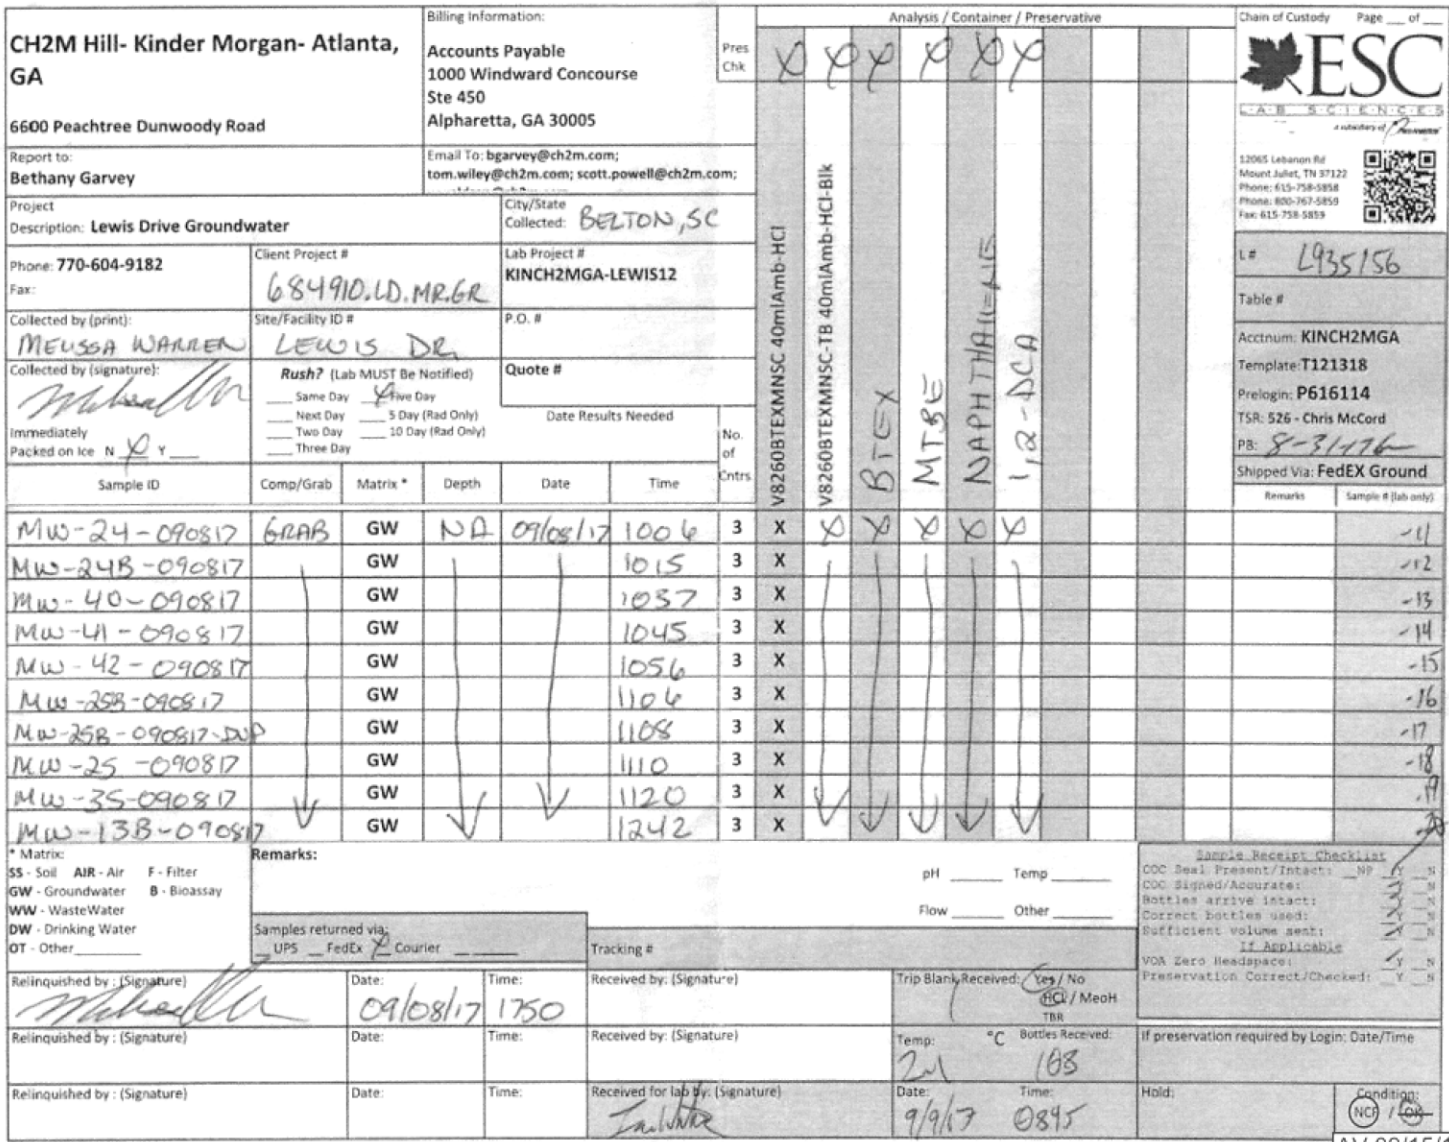 CH2M Hill- Kinder Morgan- Atlanta,
GA
6600 Peachtree Dunwoody Road
Billing Information:
Accounts Payable
1000 Windward Concourse
Ste 450
Alpharetta, GA 30005
Pres
Chk
Analysis / Container / Preservative
X X X X X X
Chain of Custody Page ___ of ___
ESC
L·A·B S·C·I·E·N·C·E·S
a subsidiary of
12065 Lebanon Rd
Mount Juliet, TN 37122
Phone: 615-758-5858
Phone: 800-767-5859
Fax: 615-758-5859
Report to:
Bethany Garvey
Email To: bgarvey@ch2m.com;
tom.wiley@ch2m.com; scott.powell@ch2m.com;
Project
Description: Lewis Drive Groundwater
City/State
Collected: BELTON, SC
Phone: 770-604-9182
Fax:
Client Project #
684910.LD.MR.GR
Lab Project #
KINCH2MGA-LEWIS12
Collected by (print):
MELISSA WARREN
Site/Facility ID #
LEWIS DR.
P.O. #
Collected by (signature):
Immediately
Packed on Ice N X Y ___
Rush? (Lab MUST Be Notified)
___ Same Day X Five Day
___ Next Day ___ 5 Day (Rad Only)
___ Two Day ___ 10 Day (Rad Only)
___ Three Day
Quote #
Date Results Needed
No.
of
Cntrs
V8260BTEXMNSC 40mlAmb-HCl
V8260BTEXMNSC-TB 40mlAmb-HCl-Blk
BTEX
MTBE
NAPHTHALENE
1,2-DCA
L # L935156
Table #
Acctnum: KINCH2MGA
Template: T121318
Prelogin: P616114
TSR: 526 - Chris McCord
PB:
Shipped Via: FedEX Ground
Sample ID Comp/Grab Matrix * Depth Date Time Remarks Sample # (lab only)
MW-24-090817 GRAB GW NA 09/08/17 1006 3 X X X X X X -11
MW-24B-090817 GW 1015 3 X -12
MW-40-090817 GW 1037 3 X -13
MW-41-090817 GW 1045 3 X -14
MW-42-090817 GW 1056 3 X -15
MW-25B-090817 GW 1106 3 X -16
MW-25B-090817-DUP GW 1108 3 X -17
MW-25-090817 GW 1110 3 X -18
MW-35-090817 GW 1120 3 X -19
MW-13B-090817 GW 1242 3 X
* Matrix:
SS - Soil AIR - Air F - Filter
GW - Groundwater B - Bioassay
WW - WasteWater
DW - Drinking Water
OT - Other
Remarks:
pH ___ Temp ___
Flow ___ Other ___
Samples returned via:
__ UPS __ FedEx X Courier
Tracking #
Sample Receipt Checklist
COC Seal Present/Intact: __NP __Y __N
COC Signed/Accurate: __Y __N
Bottles arrive intact: __Y __N
Correct bottles used: __Y __N
Sufficient volume sent: __Y __N
If Applicable
VOA Zero Headspace: __Y __N
Preservation Correct/Checked: __Y __N
Relinquished by : (Signature)
Date:
09/08/17
Time:
1750
Received by: (Signature)
Trip Blank Received: Yes / No
HCL / MeoH
TBR
Relinquished by : (Signature)
Date:
Time:
Received by: (Signature)
Temp: °C
Bottles Received:
108
If preservation required by Login: Date/Time
Relinquished by : (Signature)
Date:
Time:
Received for lab by: (Signature)
Date:
9/9/17
Time:
0845
Hold:
Condition:
NCF / OK